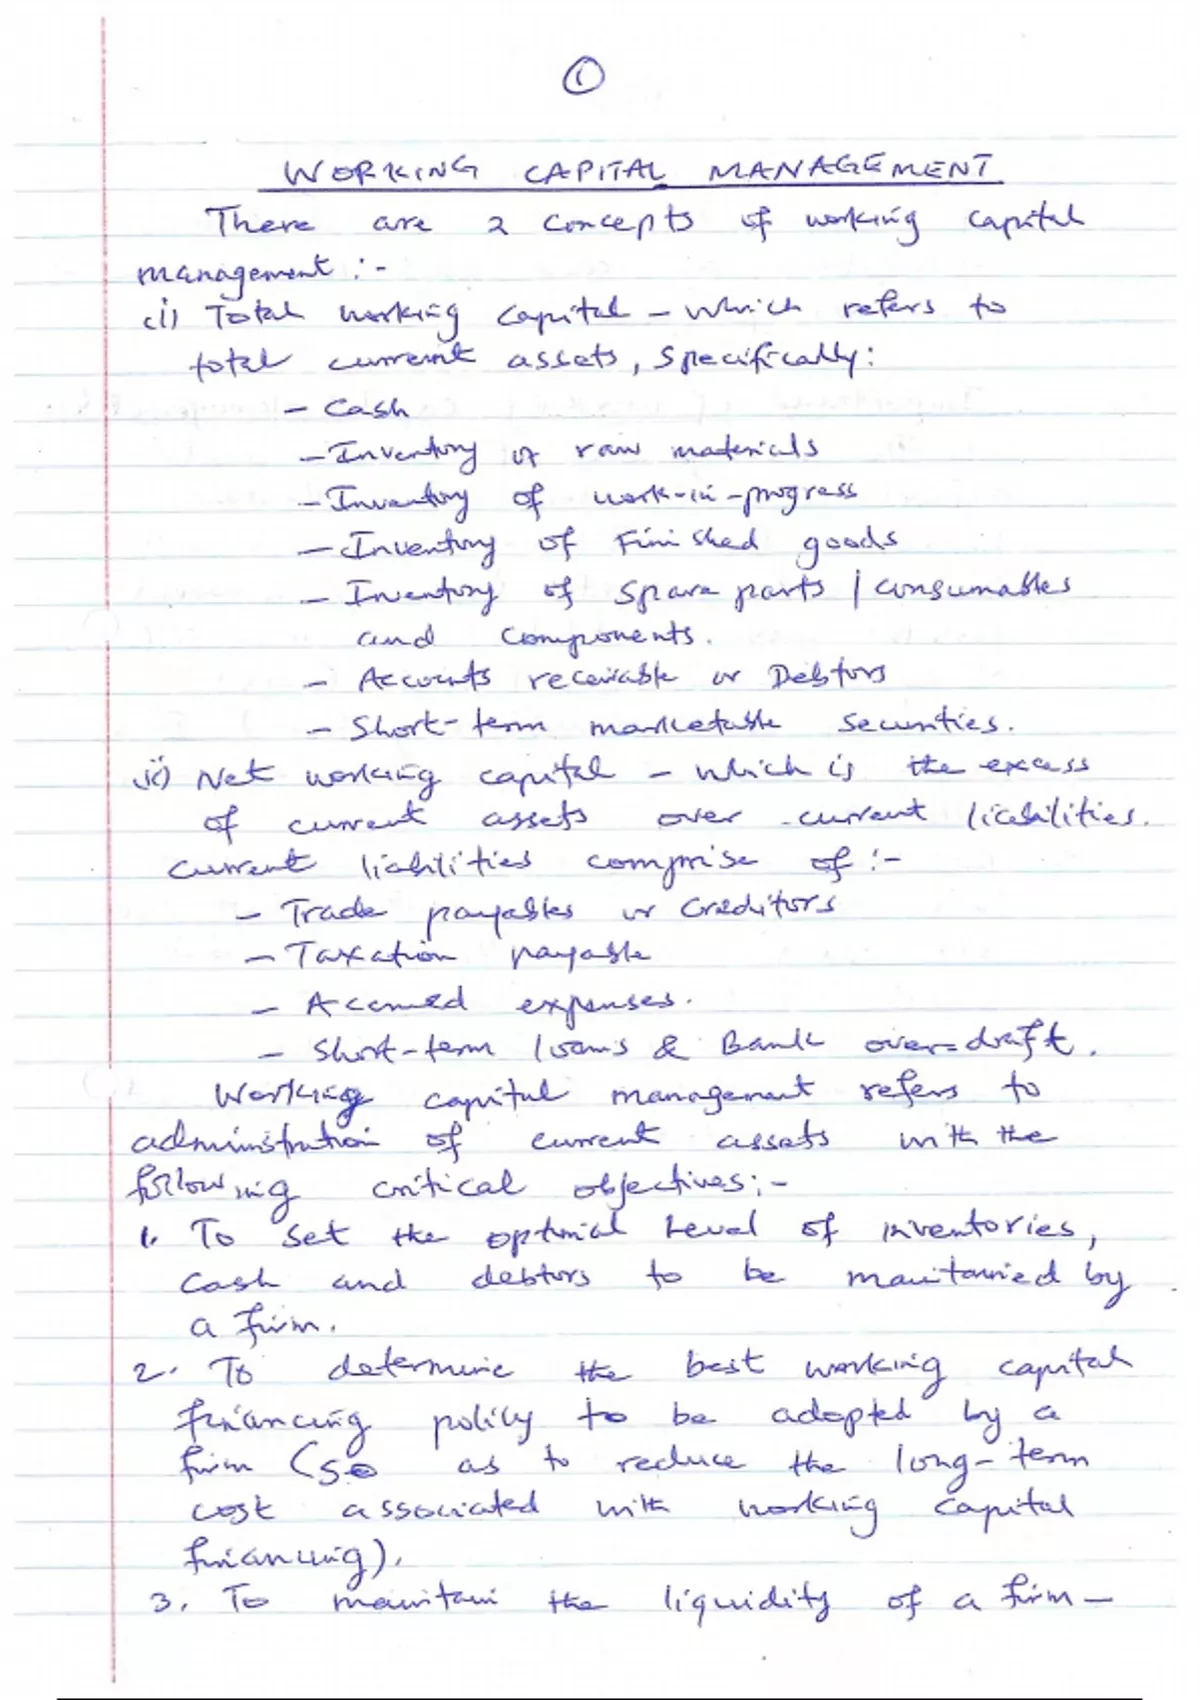 1
WORKING CAPITAL MANAGEMENT
There are 2 concepts of working capital
management :-
(i) Total working capital - which refers to
total current assets, specifically:
- Cash
- Inventory of raw materials
- Inventory of work-in-progress
- Inventory of Finished goods
- Inventory of spare parts / consumables
and components.
- Accounts receivable or Debtors
- Short-term marketable securities.
(ii) Net working capital - which is the excess
of current assets over current liabilities.
Current liabilities comprise of :-
- Trade payables or Creditors
- Taxation payable
- Accrued expenses.
- Short-term loans & Bank over-draft.
Working capital management refers to
administration of current assets with the
following critical objectives:-
1. To set the optimal level of inventories,
cash and debtors to be maintained by
a firm.
2. To determine the best working capital
financing policy to be adopted by a
firm (so as to reduce the long-term
cost associated with working capital
financing).
3. To maintain the liquidity of a firm -